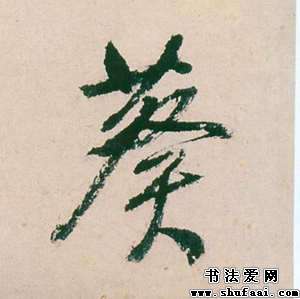 葵
书法爱网
www.shufaai.com